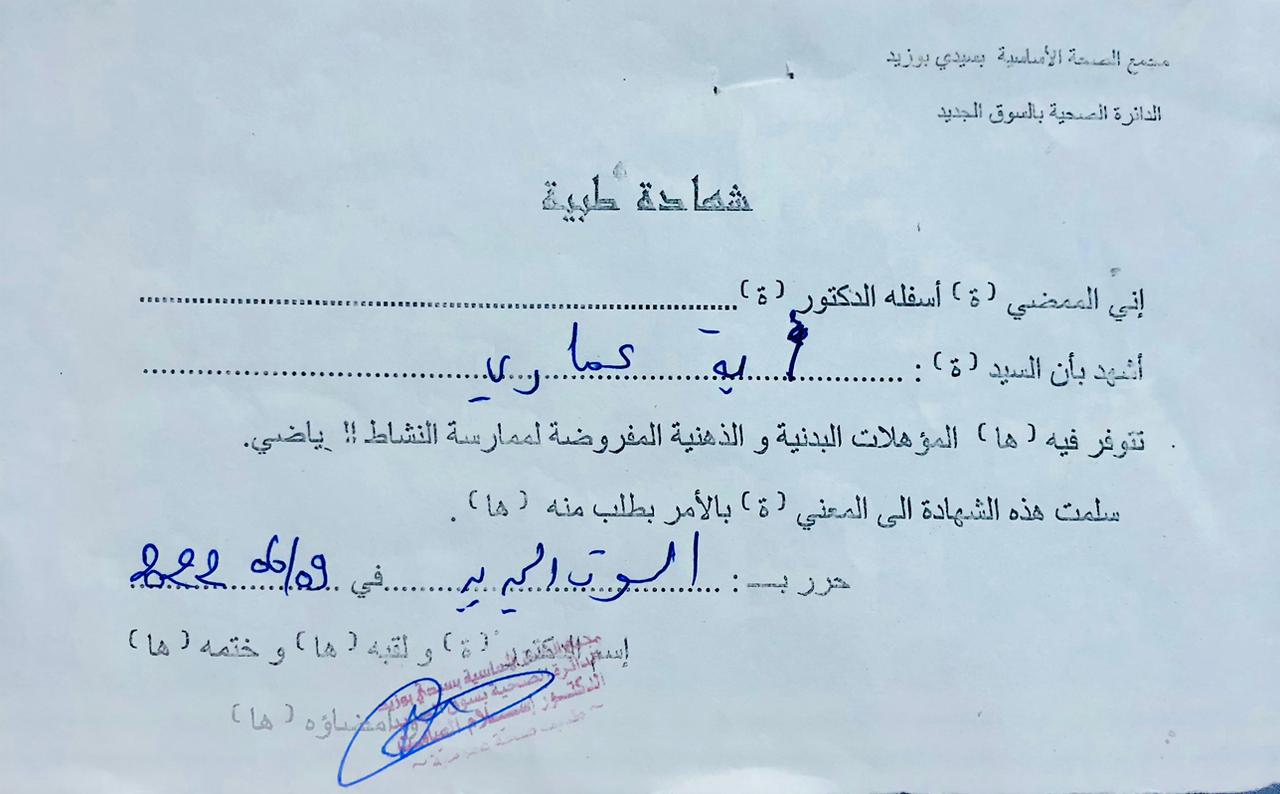 مجمع الصحة الأساسية بسيدي بوزيد
الدائرة الصحية بالسوق الجديد
شهادة طبية
إني الممضي (ة) أسفله الدكتور (ة)
أشهد بأن السيد (ة) : أية عماري
تتوفر فيه (ها) المؤهلات البدنية و الذهنية المفروضة لممارسة النشاط الرياضي.
سلمت هذه الشهادة الى المعني (ة) بالأمر بطلب منه (ها) .
حرر بـــ : السوق الجديد في 06/09 2022
إسم الدكتور (ة) و لقبه (ها) و ختمه (ها)
وإمضاؤه (ها)
مجمع الصحة الأساسية بسيدي بوزيد
الدائرة الصحية بسوق الجديد
الدكتور إسلام